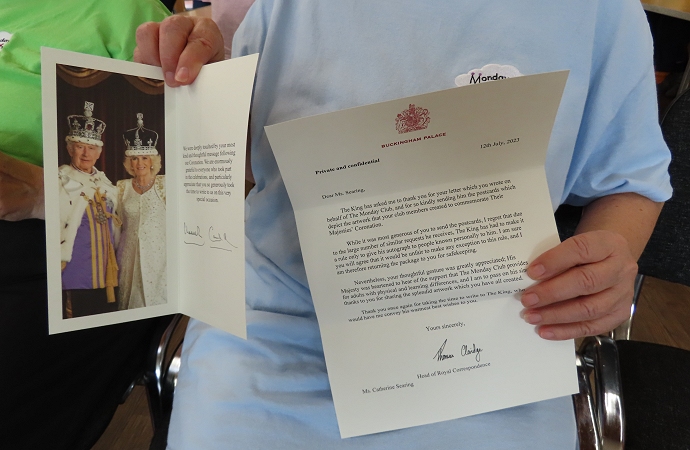 We were deeply touched by your most
kind and thoughtful message following
our Coronation. We are enormously
grateful to everyone who took part
in the celebrations, and particularly
appreciate that you so generously took
the time to write to us on this very
special occasion.
Monday
BUCKINGHAM PALACE
12th July, 2023
Private and confidential
Dear Ms. Searing,
The King has asked me to thank you for your letter which you wrote on
behalf of The Monday Club, and for so kindly sending him the postcards which
depict the artwork that your club members created to commemorate Their
Majesties' Coronation.
While it was most generous of you to send the postcards, I regret that due
to the large number of similar requests he receives, The King has had to make it
a rule only to give his autograph to people known personally to him. I am sure
you will agree that it would be unfair to make any exception to this rule, and I
am therefore returning the package to you for safekeeping.
Nevertheless, your thoughtful gesture was greatly appreciated; His
Majesty was heartened to hear of the support that The Monday Club provides
for adults with physical and learning differences, and I am to pass on his
thanks to you for sharing the splendid artwork which you have all created.
Thank you once again for taking the time to write to The King, who
would have me convey his warmest best wishes to you.
Yours sincerely,
Head of Royal Correspondence
Ms. Catherine Searing